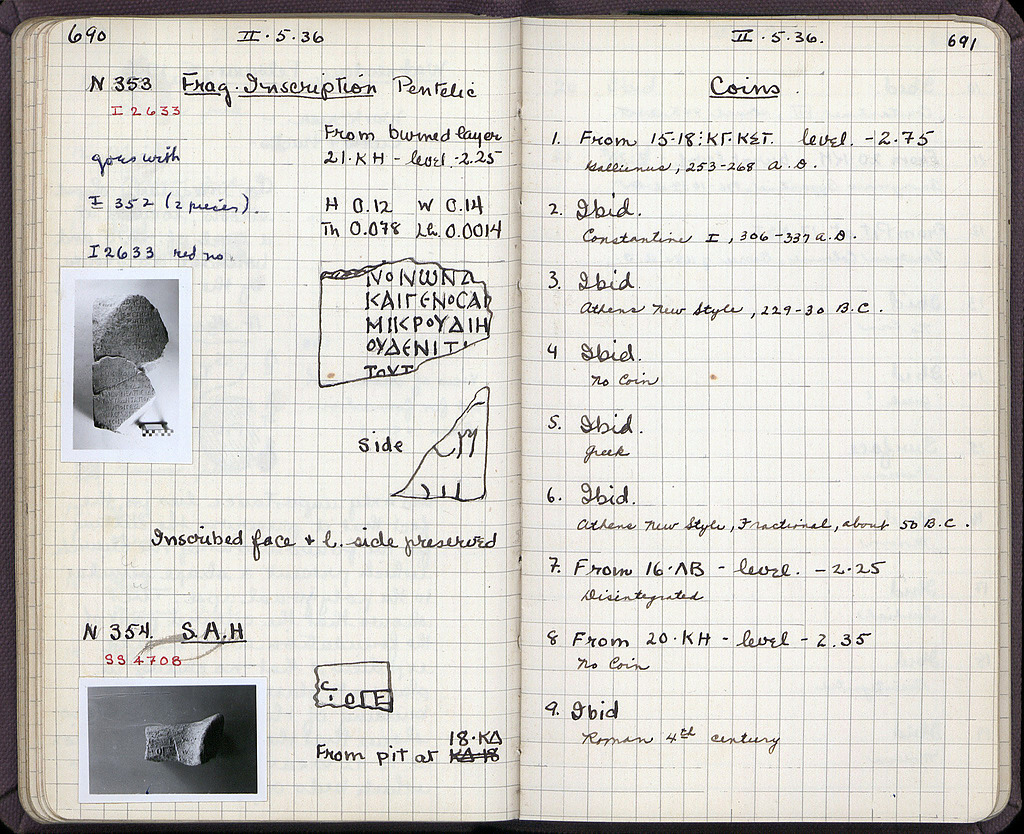 690
II·5·36
N 353 Frag. Inscription Pentelic
I 2633
From burned layer
21·ΚΗ - level -2.25
goes with
I 352 (2 pieces).
I 2633 red no.
H 0.12 W 0.14
Th 0.078 Lh. 0.0014
ΝΟΝΩΝΔ
ΚΑΙΓΕΝΟCΑΡ
ΜΙΚΡΟΥΔΙΗ
ΟΥΔΕΝΙΤΙ
ΤΟΥΤ
side
Inscribed face + l. side preserved
N 354. S.A.H
SS 4708
ΟΙΕ
18·ΚΔ
From pit at ΚΔ·18
II·5·36.
691
Coins.
1. From 15-18:ΚΓ-ΚΣΤ. level. -2.75
Gallienus, 253-268 A.D.
2. Ibid.
Constantine I, 306-337 A.D.
3. Ibid.
Athens New Style, 229-30 B.C.
4 Ibid.
No Coin
5. Ibid.
Greek
6. Ibid.
Athens New Style, Fractional, about 50 B.C.
7. From 16·ΛΒ - level. -2.25
Disintegrated
8 From 20·ΚΗ - level - 2.35
No Coin
9. Ibid
Roman 4th century